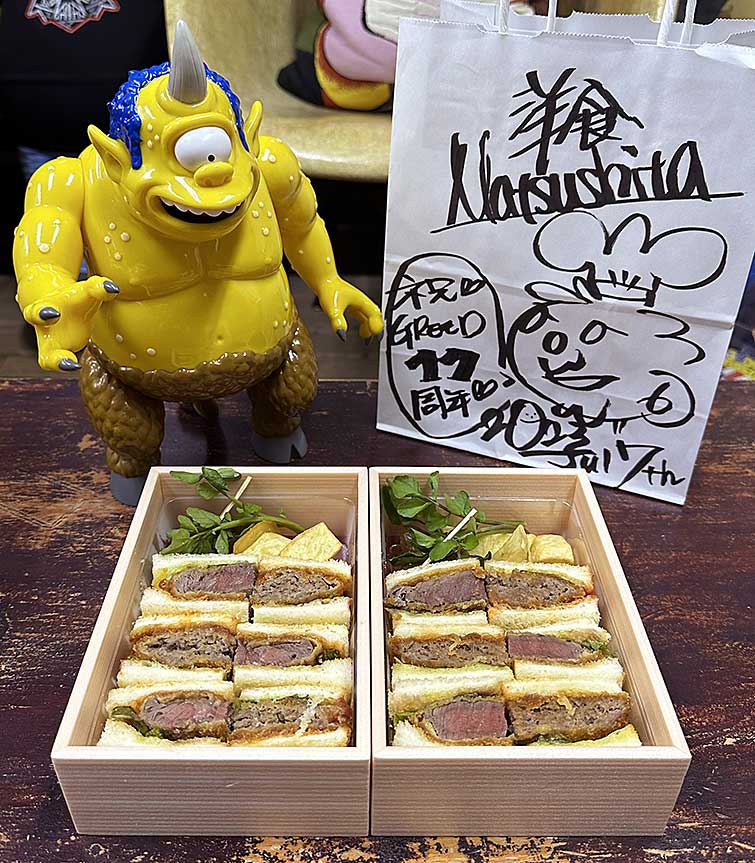 洋食
Matsushita
祝♡
GREED
17
周年♡
2023
Jul 7th